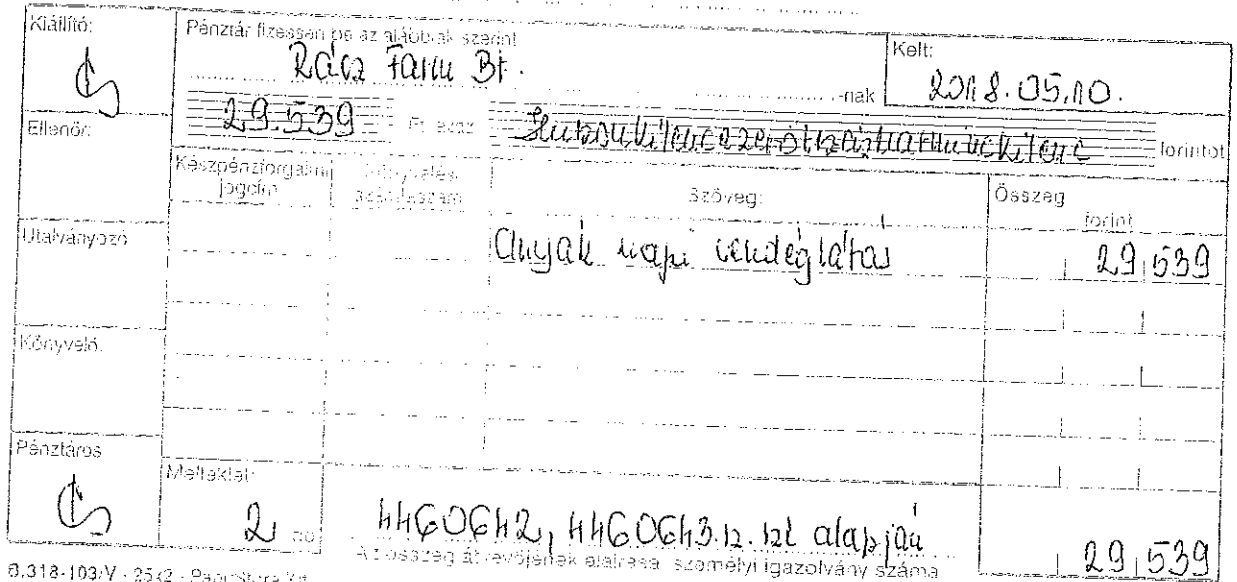 Kiállító:
Pénztár fizessen be az alábbiak szerint
Kelt:
Rácz Farm Bt.
-nak
2018.05.10.
Ellenőr:
29.539 Ft, azaz Huszonkilencezerötszázharminckilenc forintot
Készpénzforgalmi jogcím
Könyvelési számlaszám
Szöveg:
Összeg
forint
Utalványozó
Anyák napi vendéglátás
29.539
Könyvelő:
Pénztáros
Melléklet:
2
4460642, 4460643.
alapján
29.539
Az összeg átvevőjének aláírása személyi igazolvány száma
B.318-103/V